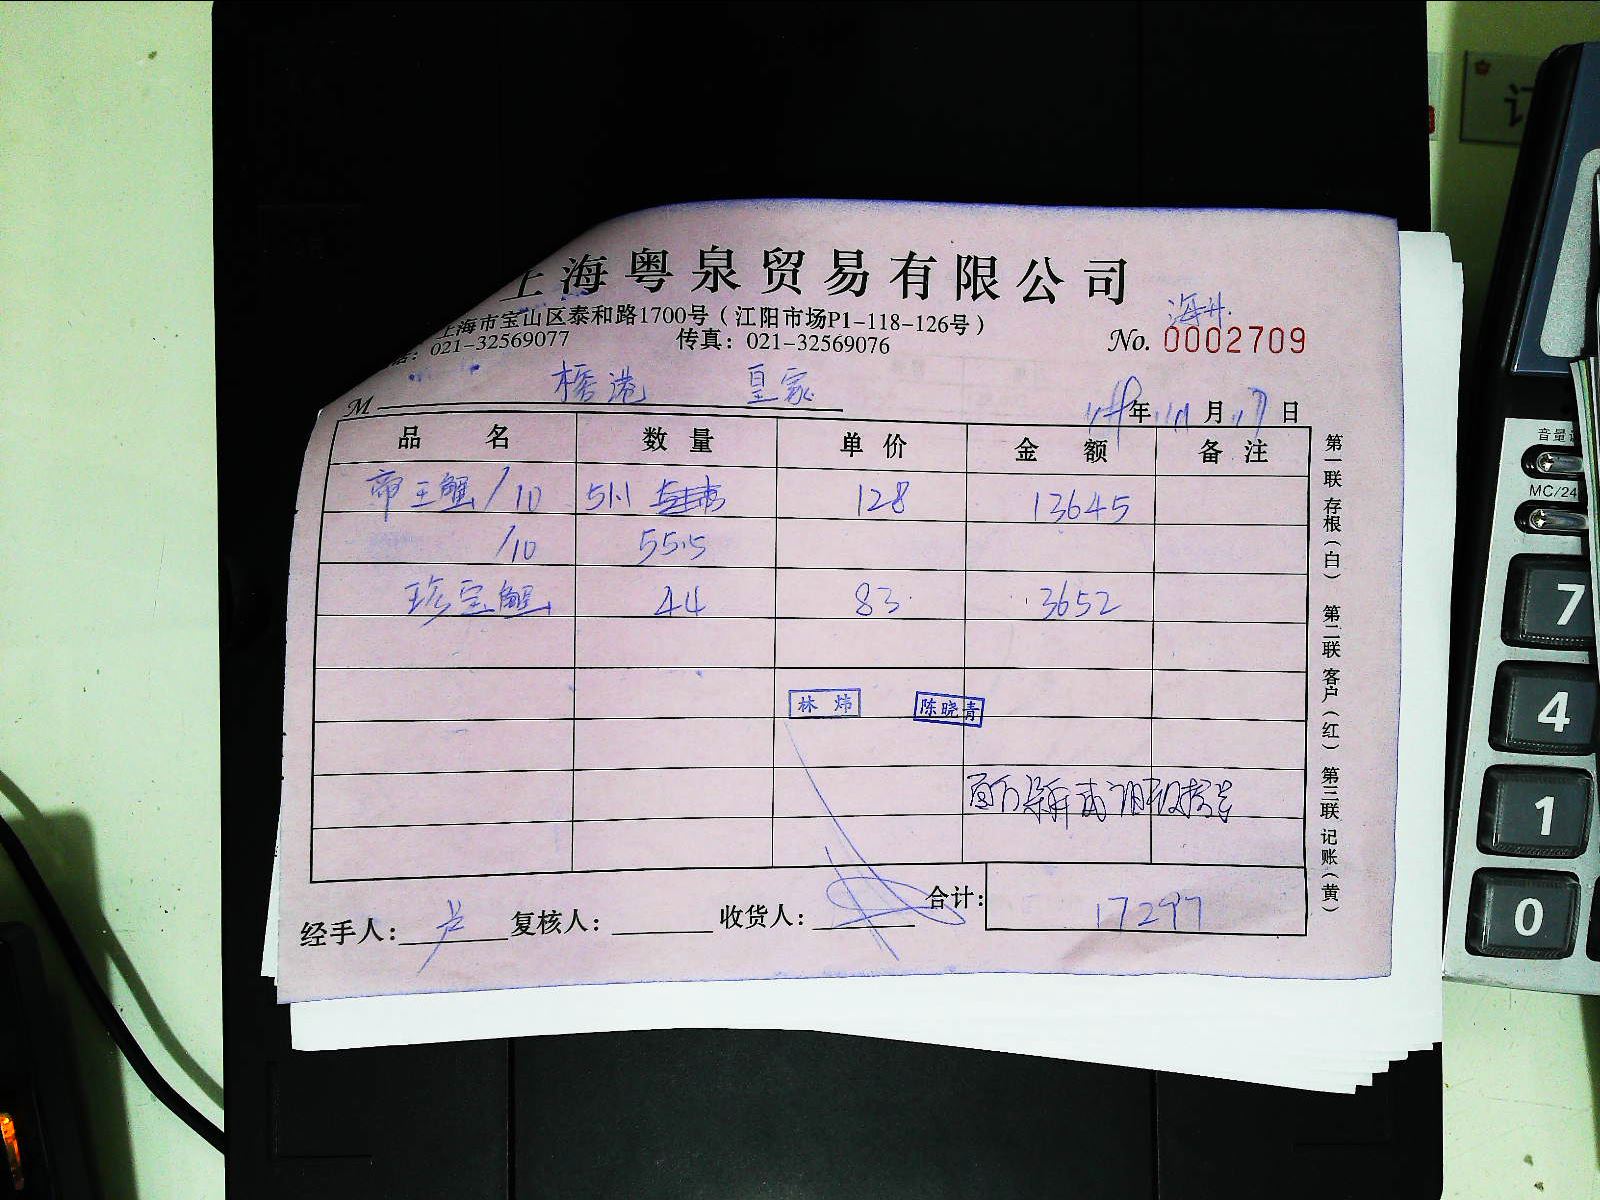 上海粤泉贸易有限公司
上海市宝山区泰和路1700号（江阳市场P1-118-126号）
021-32569077 传真：021-32569076
海
No. 0002709
M 皇家
年 月 日
品名 数量 单价 金额 备注
帝王蟹/10 51.1 128 13645
/10 55.5
珍宝蟹 44 83 3652
林炜 陈晓青
合计：17297
经手人： 复核人： 收货人：
第一联 存根（白） 第二联 客户（红） 第三联 记账（黄）
音量
MC/24
7
4
1
0